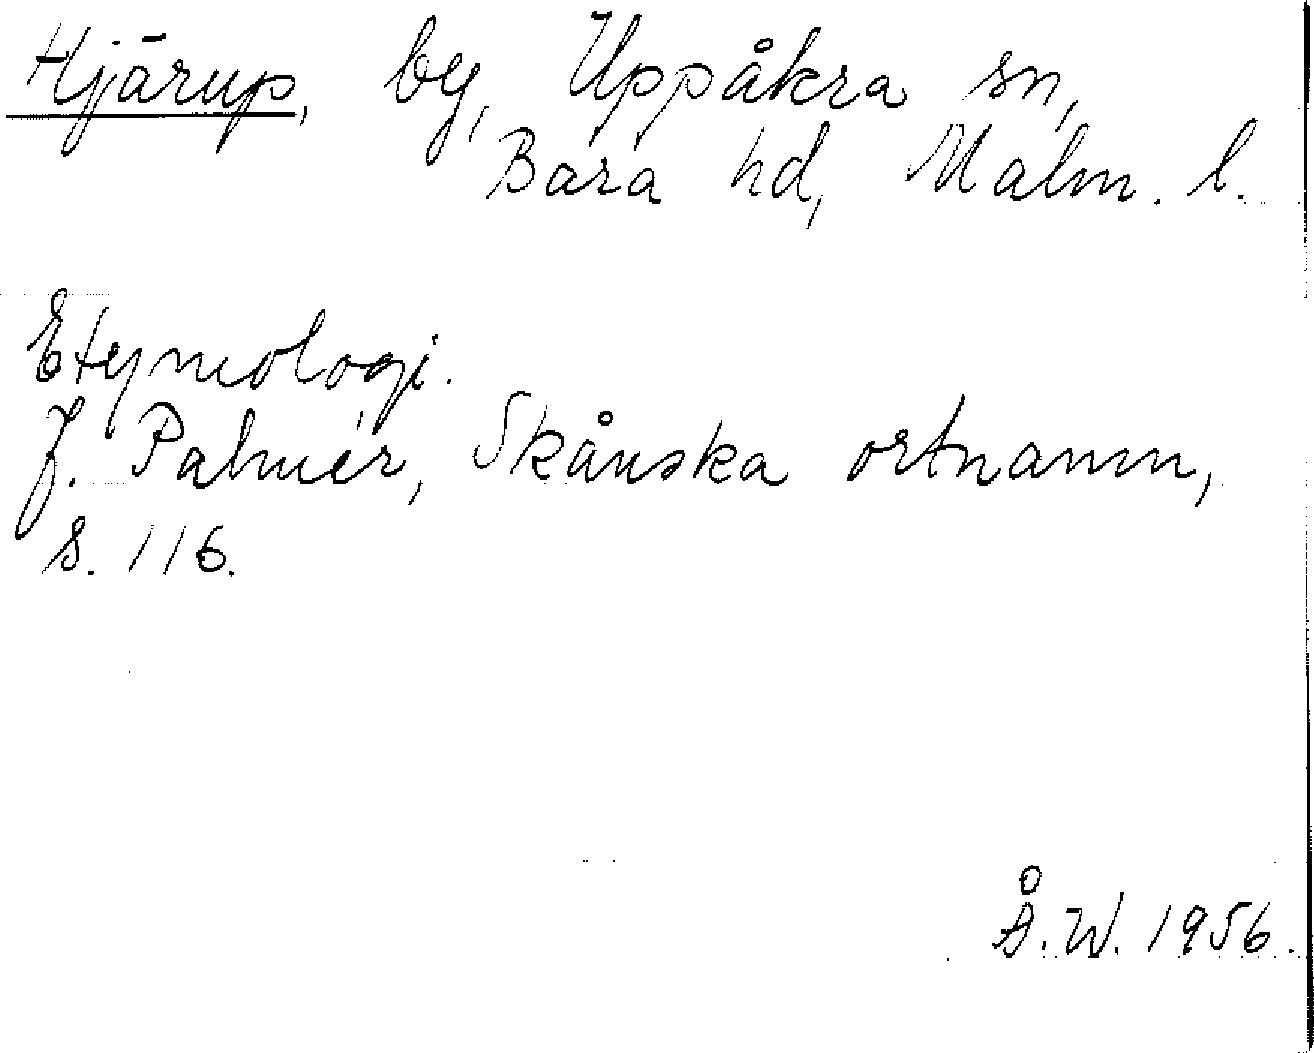 Hjärup, by, Uppåkra sn,
Bara hd, Malm. l.
Etymologi.
J. Palmér, Skånska ortnamn,
s. 116.
Å. W. 1956.